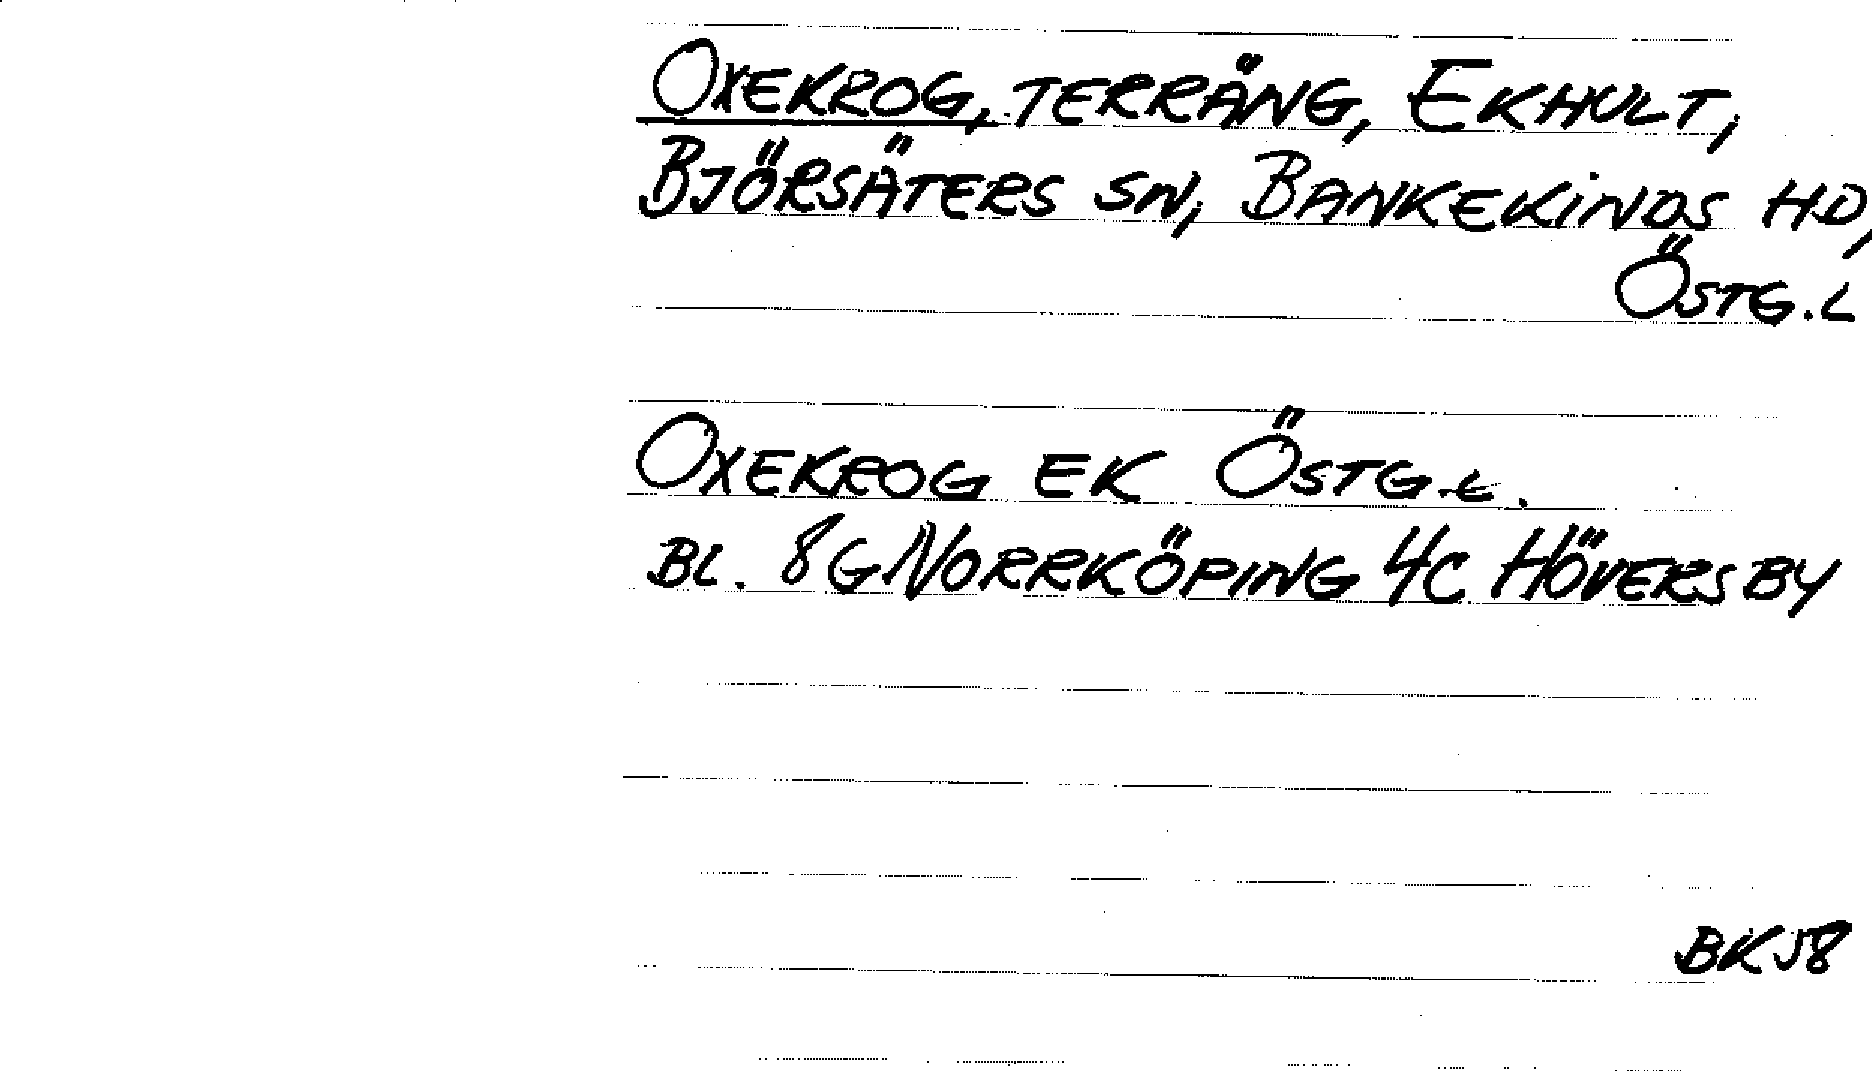 OXEKROG, TERRÄNG, EKHULT,
BJÖRSÄTERS SN, BANKEKINDS HD,
ÖSTG.L
OXEKROG EK ÖSTG.L.
BL. 8G NORRKÖPING 4C HÖVERSBY
BK58